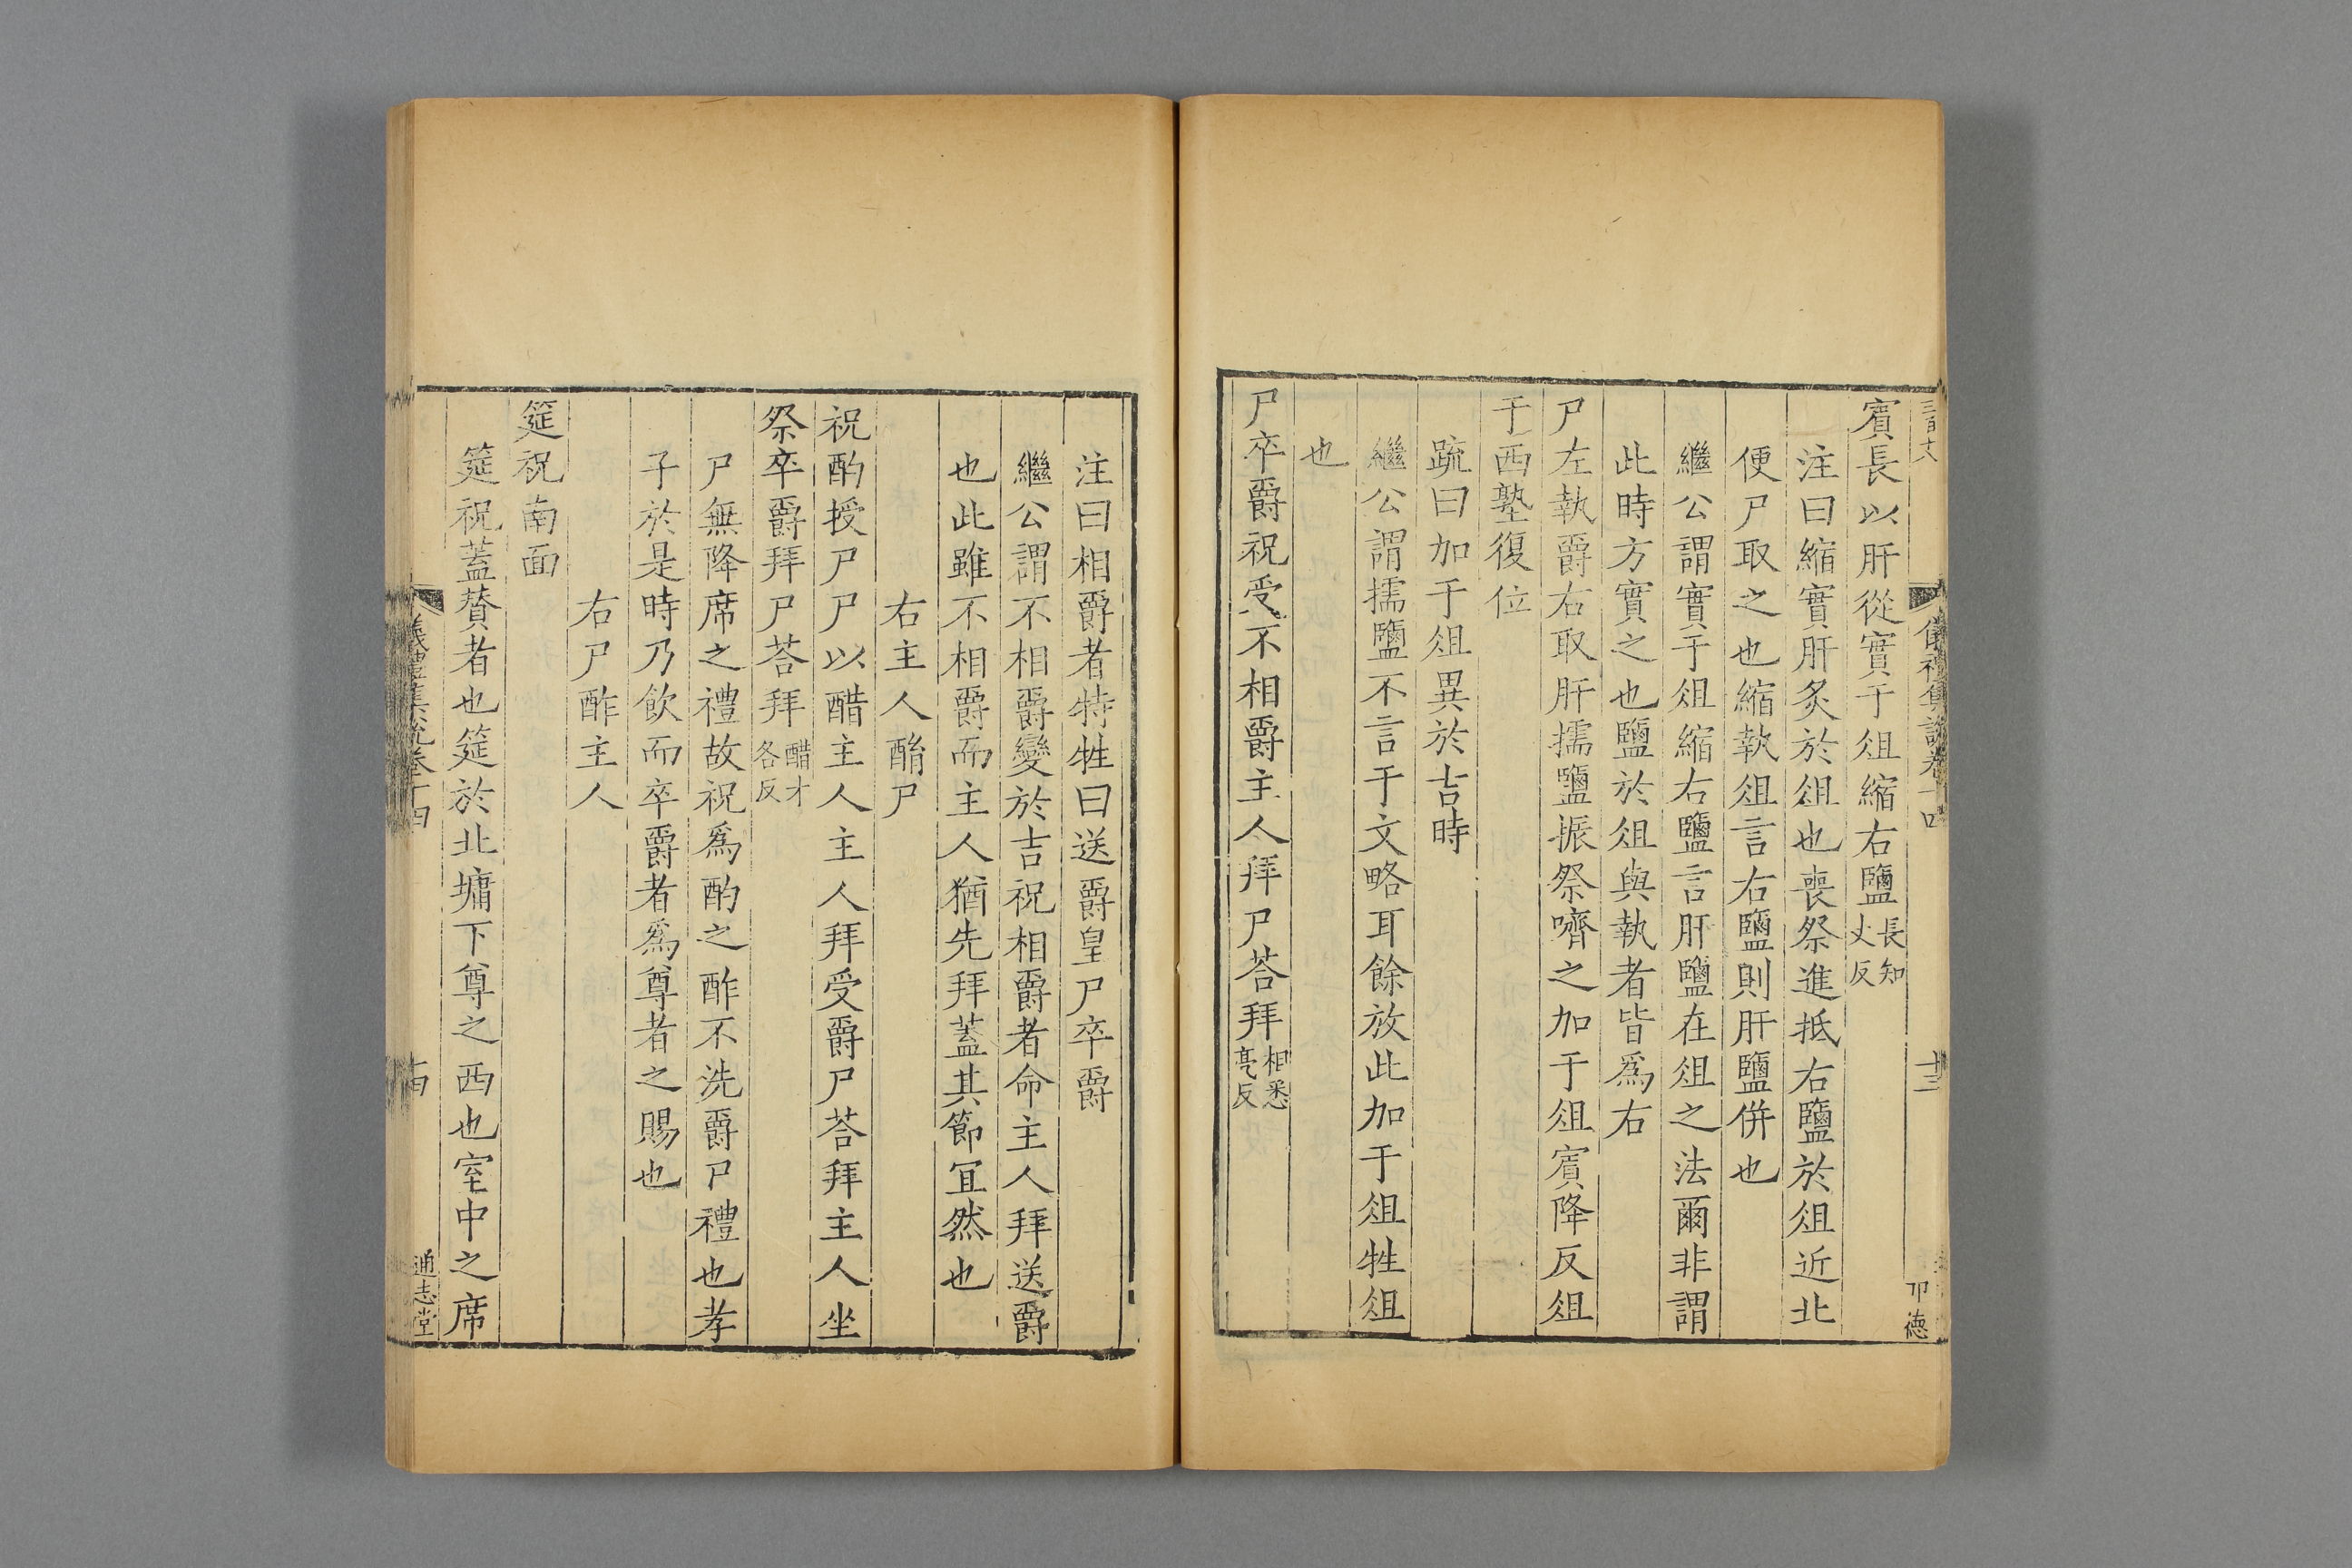 賔長以肝從實于俎縮右鹽長知丈反
注曰縮實肝炙於俎也喪祭進抵右鹽於俎近北
便尸取之也縮執俎言右鹽則肝鹽併也
繼公謂實于俎縮右鹽言肝鹽在俎之法爾非謂
此時方實之也鹽於俎與執者皆爲右
尸左執爵右取肝擩鹽振祭嚌之加于俎賔降反俎
于西塾復位
䟽曰加于俎異於吉時
繼公謂擩鹽不言于文略耳餘放此加于俎牲俎
也
尸卒爵祝受不相爵主人拜尸荅拜相悉亮反
注曰相爵者特牲曰送爵皇尸卒爵
繼公謂不相爵變於吉祝相爵者命主人拜送爵
也此雖不相爵而主人猶先拜蓋其節宜然也
右主人酳尸
祝酌授尸尸以醋主人主人拜受爵尸荅拜主人坐
祭卒爵拜尸荅拜醋才各反
尸無降席之禮故祝爲酌之酢不洗爵尸禮也孝
子於是時乃飲而卒爵者爲尊者之賜也
右尸酢主人
筵祝南面
筵祝蓋賛者也筵於北墉下尊之西也室中之席
儀禮集說卷十四
十四
通志堂